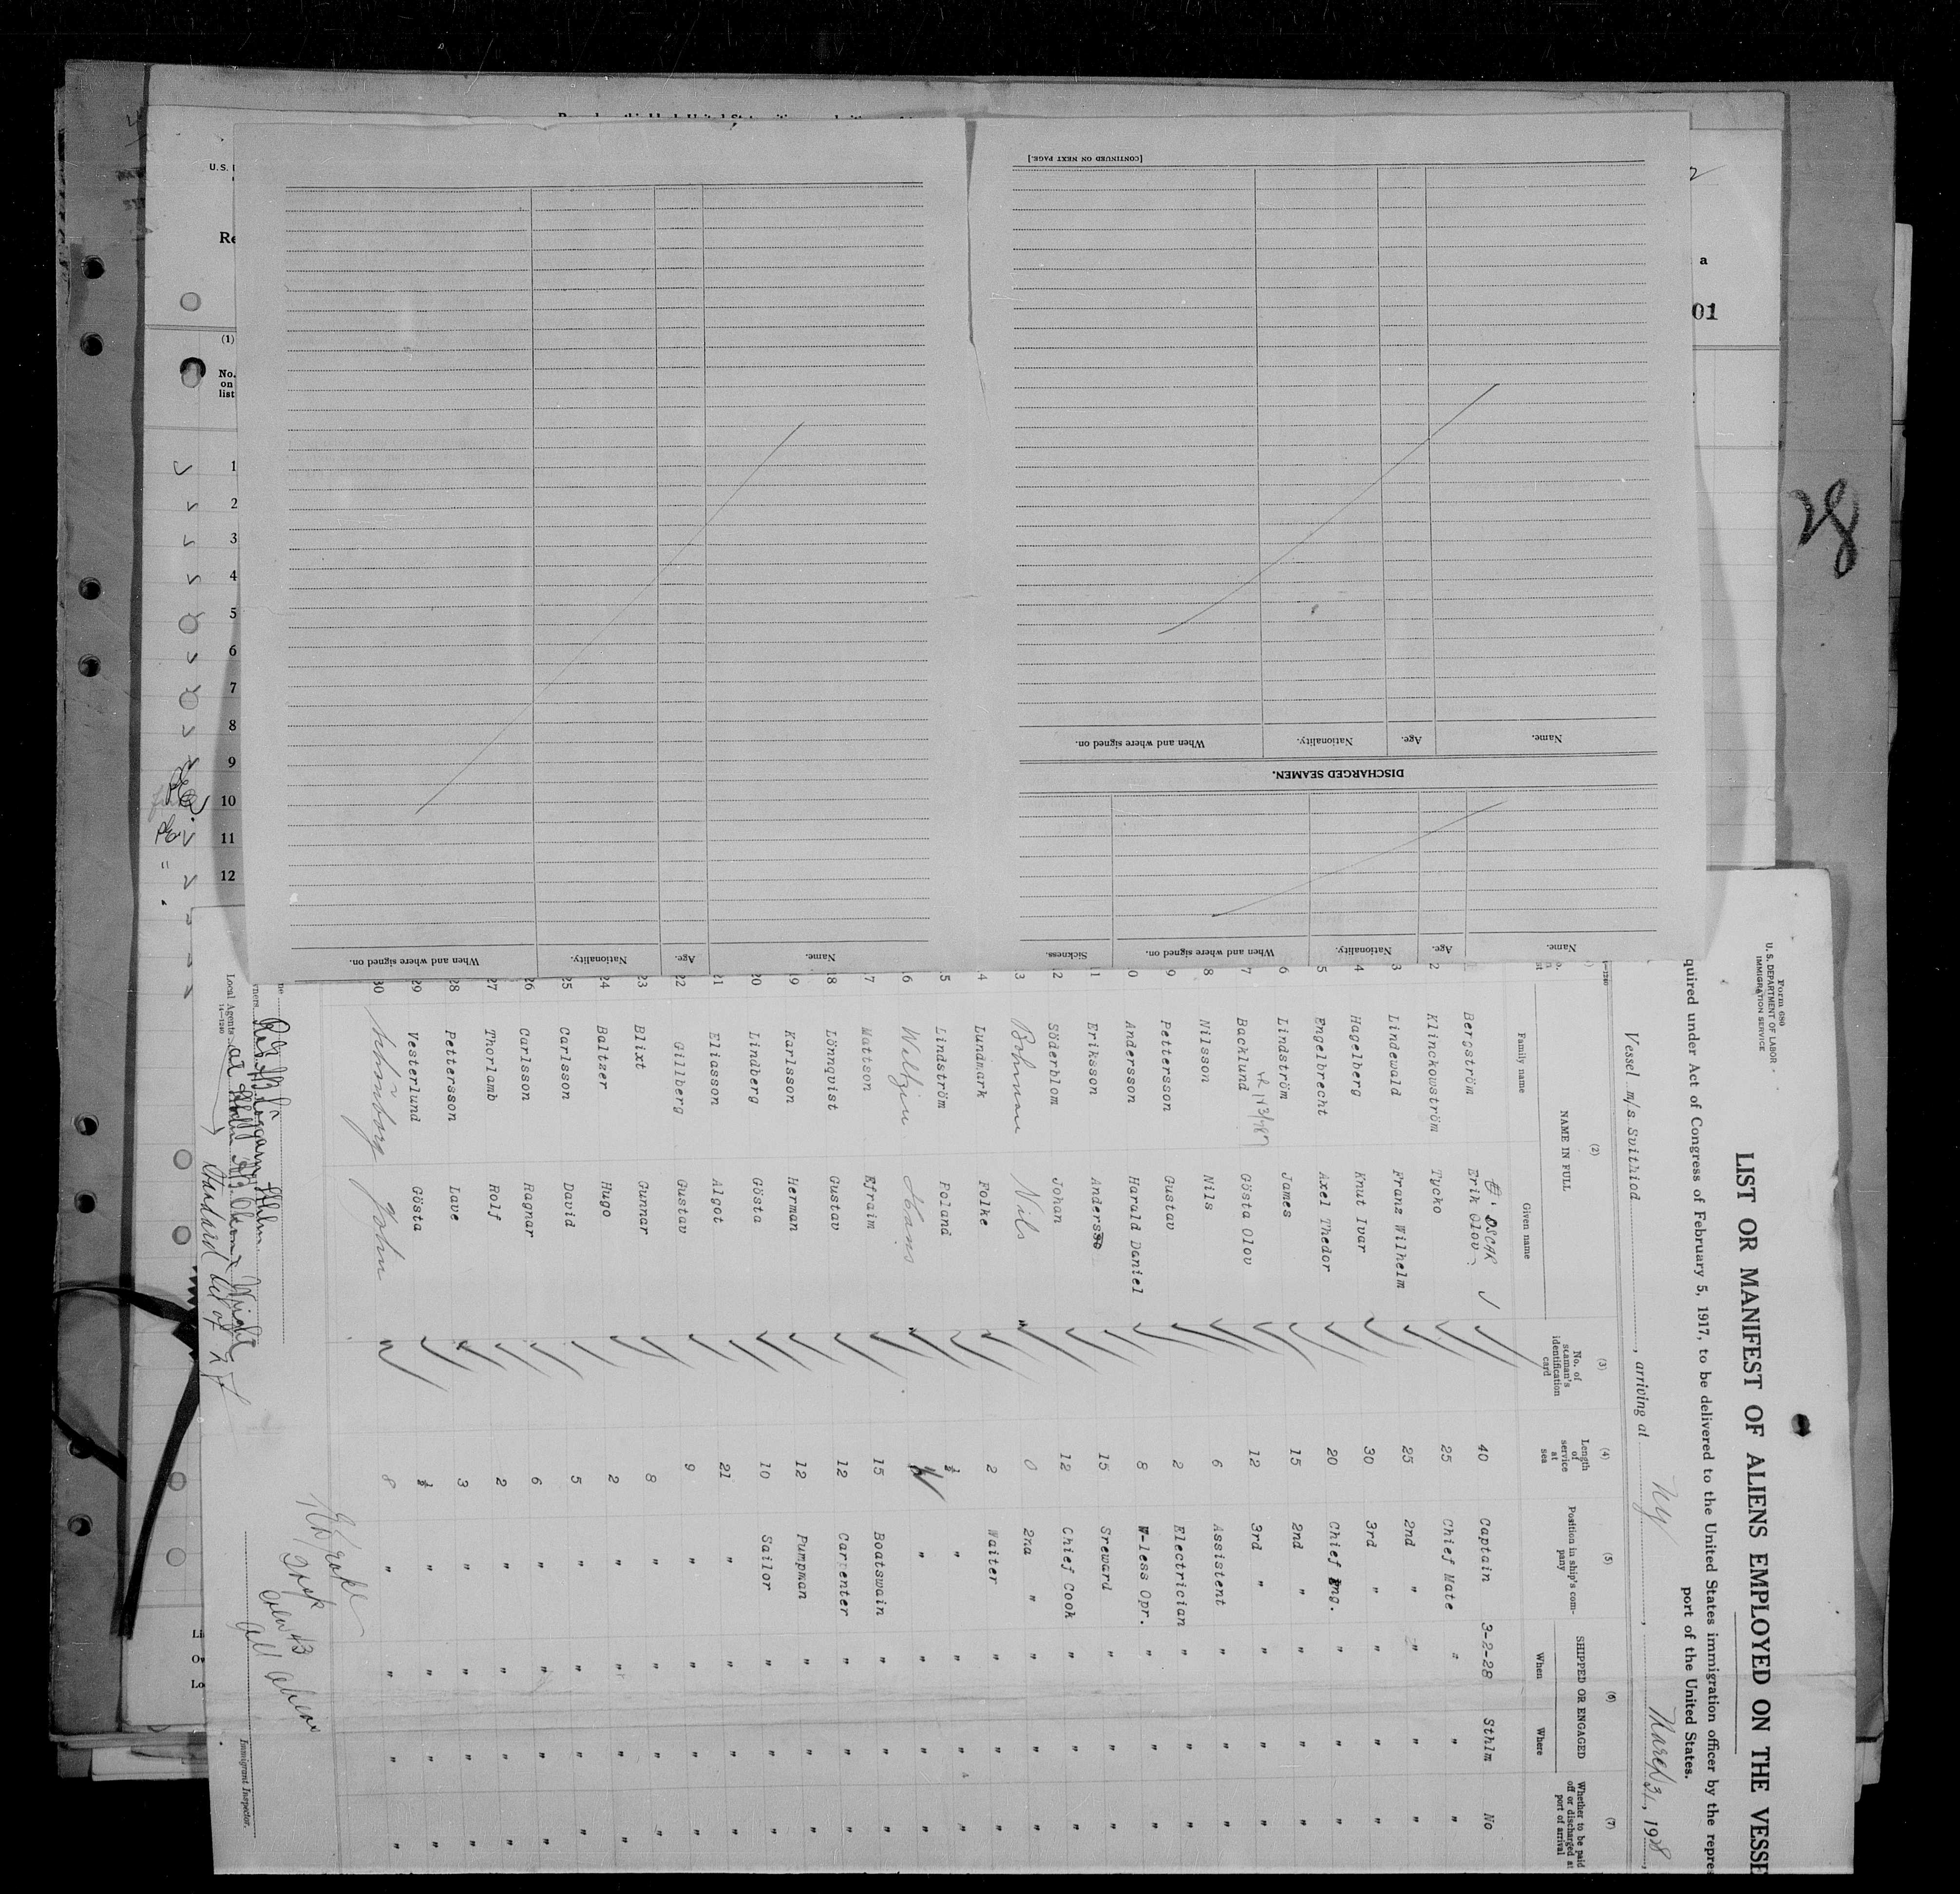 U.S.
Re
(1)
No.
on
list
1
2
3
4
5
6
7
8
9
10
11
12
a
01
28
[CONTINUED ON NEXT PAGE.]
When and where signed on. Nationality. Age. Name.
DISCHARGED SEAMEN.
When and where signed on. Nationality. Age. Name.
Sickness. When and where signed on. Nationality. Age. Name.
Form 680
U. S. DEPARTMENT OF LABOR
IMMIGRATION SERVICE
LIST OR MANIFEST OF ALIENS EMPLOYED ON THE VESSE
quired under Act of Congress of February 5, 1917, to be delivered to the United States immigration officer by the repres
port of the United States.
Vessel m/s. Svithiod, arriving at NY, March 31, 1928,
14-1240
(2) (3) (4) (5) (6) (7)
NAME IN FULL No. of seaman's identification card Length of service at sea Position in ship's company SHIPPED OR ENGAGED Whether to be paid off or discharged at port of arrival
Family name Given name When Where
Bergström Erik Olov OSCAR 40 Captain 3-2-28 Sthlm No
2 Klinckowström Tycko 25 Chief Mate " " "
3 Lindewald Franz Wilhelm 25 2nd " " " "
4 Hagelberg Knut Ivar 30 3rd " " " "
5 Engelbrecht Axel Thedor 20 Chief Eng. " " "
6 Lindström James 15 2nd " " " "
7 Backlund Gösta Olov 12 3rd " " " "
8 Nilsson Nils 6 Assistent " " "
9 Pettersson Gustav 2 Electrician " " "
10 Andersson Harald Daniel 8 W-less Opr. " " "
11 Eriksson Anders 15 Sreward " " "
12 Söderblom Johan 12 Chief Cook " " "
13 Bohman Nils 0 2nd " " " "
14 Lundmark Folke 2 Waiter " " "
15 Lindström Roland ½ " " " "
16 Weltzin Hans " " " "
17 Mattson Efraim 15 Boatswain " " "
18 Lönnqvist Gustav 12 Carpenter " " "
19 Karlsson Herman 12 Pumpman " " "
20 Lindberg Gösta 10 Sailor " " "
21 Eliasson Algot 21 " " " "
22 Gillberg Gustav 9 " " " "
23 Blixt Gunnar 8 " " " "
24 Baltzer Hugo 2 " " " "
25 Carlsson David 5 " " " "
26 Carlsson Ragnar 6 " " " "
27 Thorlamb Rolf 2 " " " "
28 Pettersson Lave 3 " " " "
29 Vesterlund Gösta ½ " " " "
30 John 8 " " " "
Local Agents
14-1240
Standard Oil of N J
Immigrant Inspector.